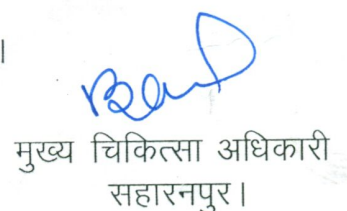 ।
मुख्य चिकित्सा अधिकारी
सहारनपुर।